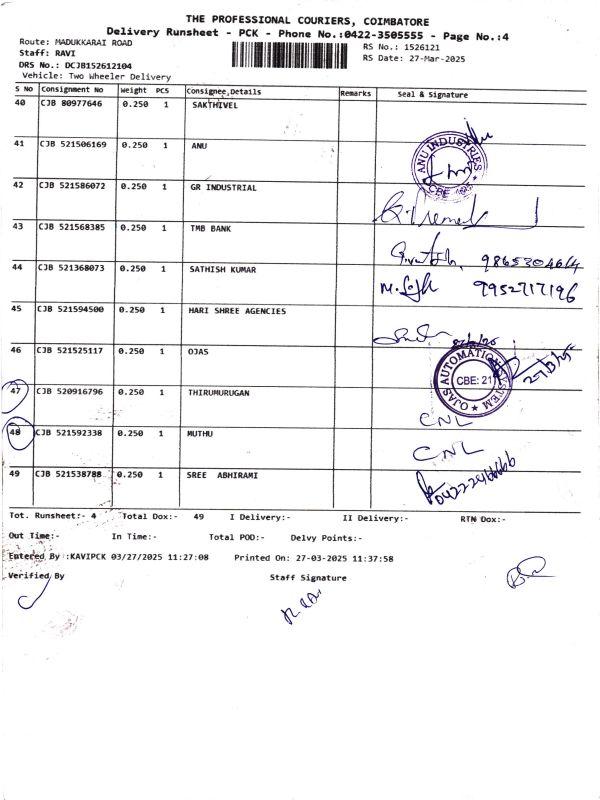 THE PROFESSIONAL COURIERS, COIMBATORE
Delivery Runsheet - PCK - Phone No.:0422-3505555 - Page No.:4
Route: MADUKKARAI ROAD
RS No.: 1526121
Staff: RAVI
RS Date: 27-Mar-2025
DRS No.: DCJB152612104
Vehicle: Two Wheeler Delivery
S No Consignment No Weight PCS Consignee,Details Remarks Seal & Signature
40 CJB 80977646 0.250 1 SAKTHIVEL
41 CJB 521506169 0.250 1 ANU
ANU INDUSTRIES
42 CJB 521586072 0.250 1 GR INDUSTRIAL
43 CJB 521568385 0.250 1 TMB BANK
9865304614
44 CJB 521368073 0.250 1 SATHISH KUMAR
9952717196
45 CJB 521594500 0.250 1 HARI SHREE AGENCIES
46 CJB 521525117 0.250 1 OJAS
OJAS AUTOMATION SYSTEM
CBE: 21
27/3/25
47 CJB 520916796 0.250 1 THIRUMURUGAN
CNL
48 CJB 521592338 0.250 1 MUTHU
CNL
49 CJB 521538788 0.250 1 SREE ABHIRAMI
Tot. Runsheet:- 4 Total Dox:- 49 I Delivery:- II Delivery:- RTN Dox:-
Out Time:- In Time:- Total POD:- Delvy Points:-
Entered By :KAVIPCK 03/27/2025 11:27:08 Printed On: 27-03-2025 11:37:58
Verified By Staff Signature